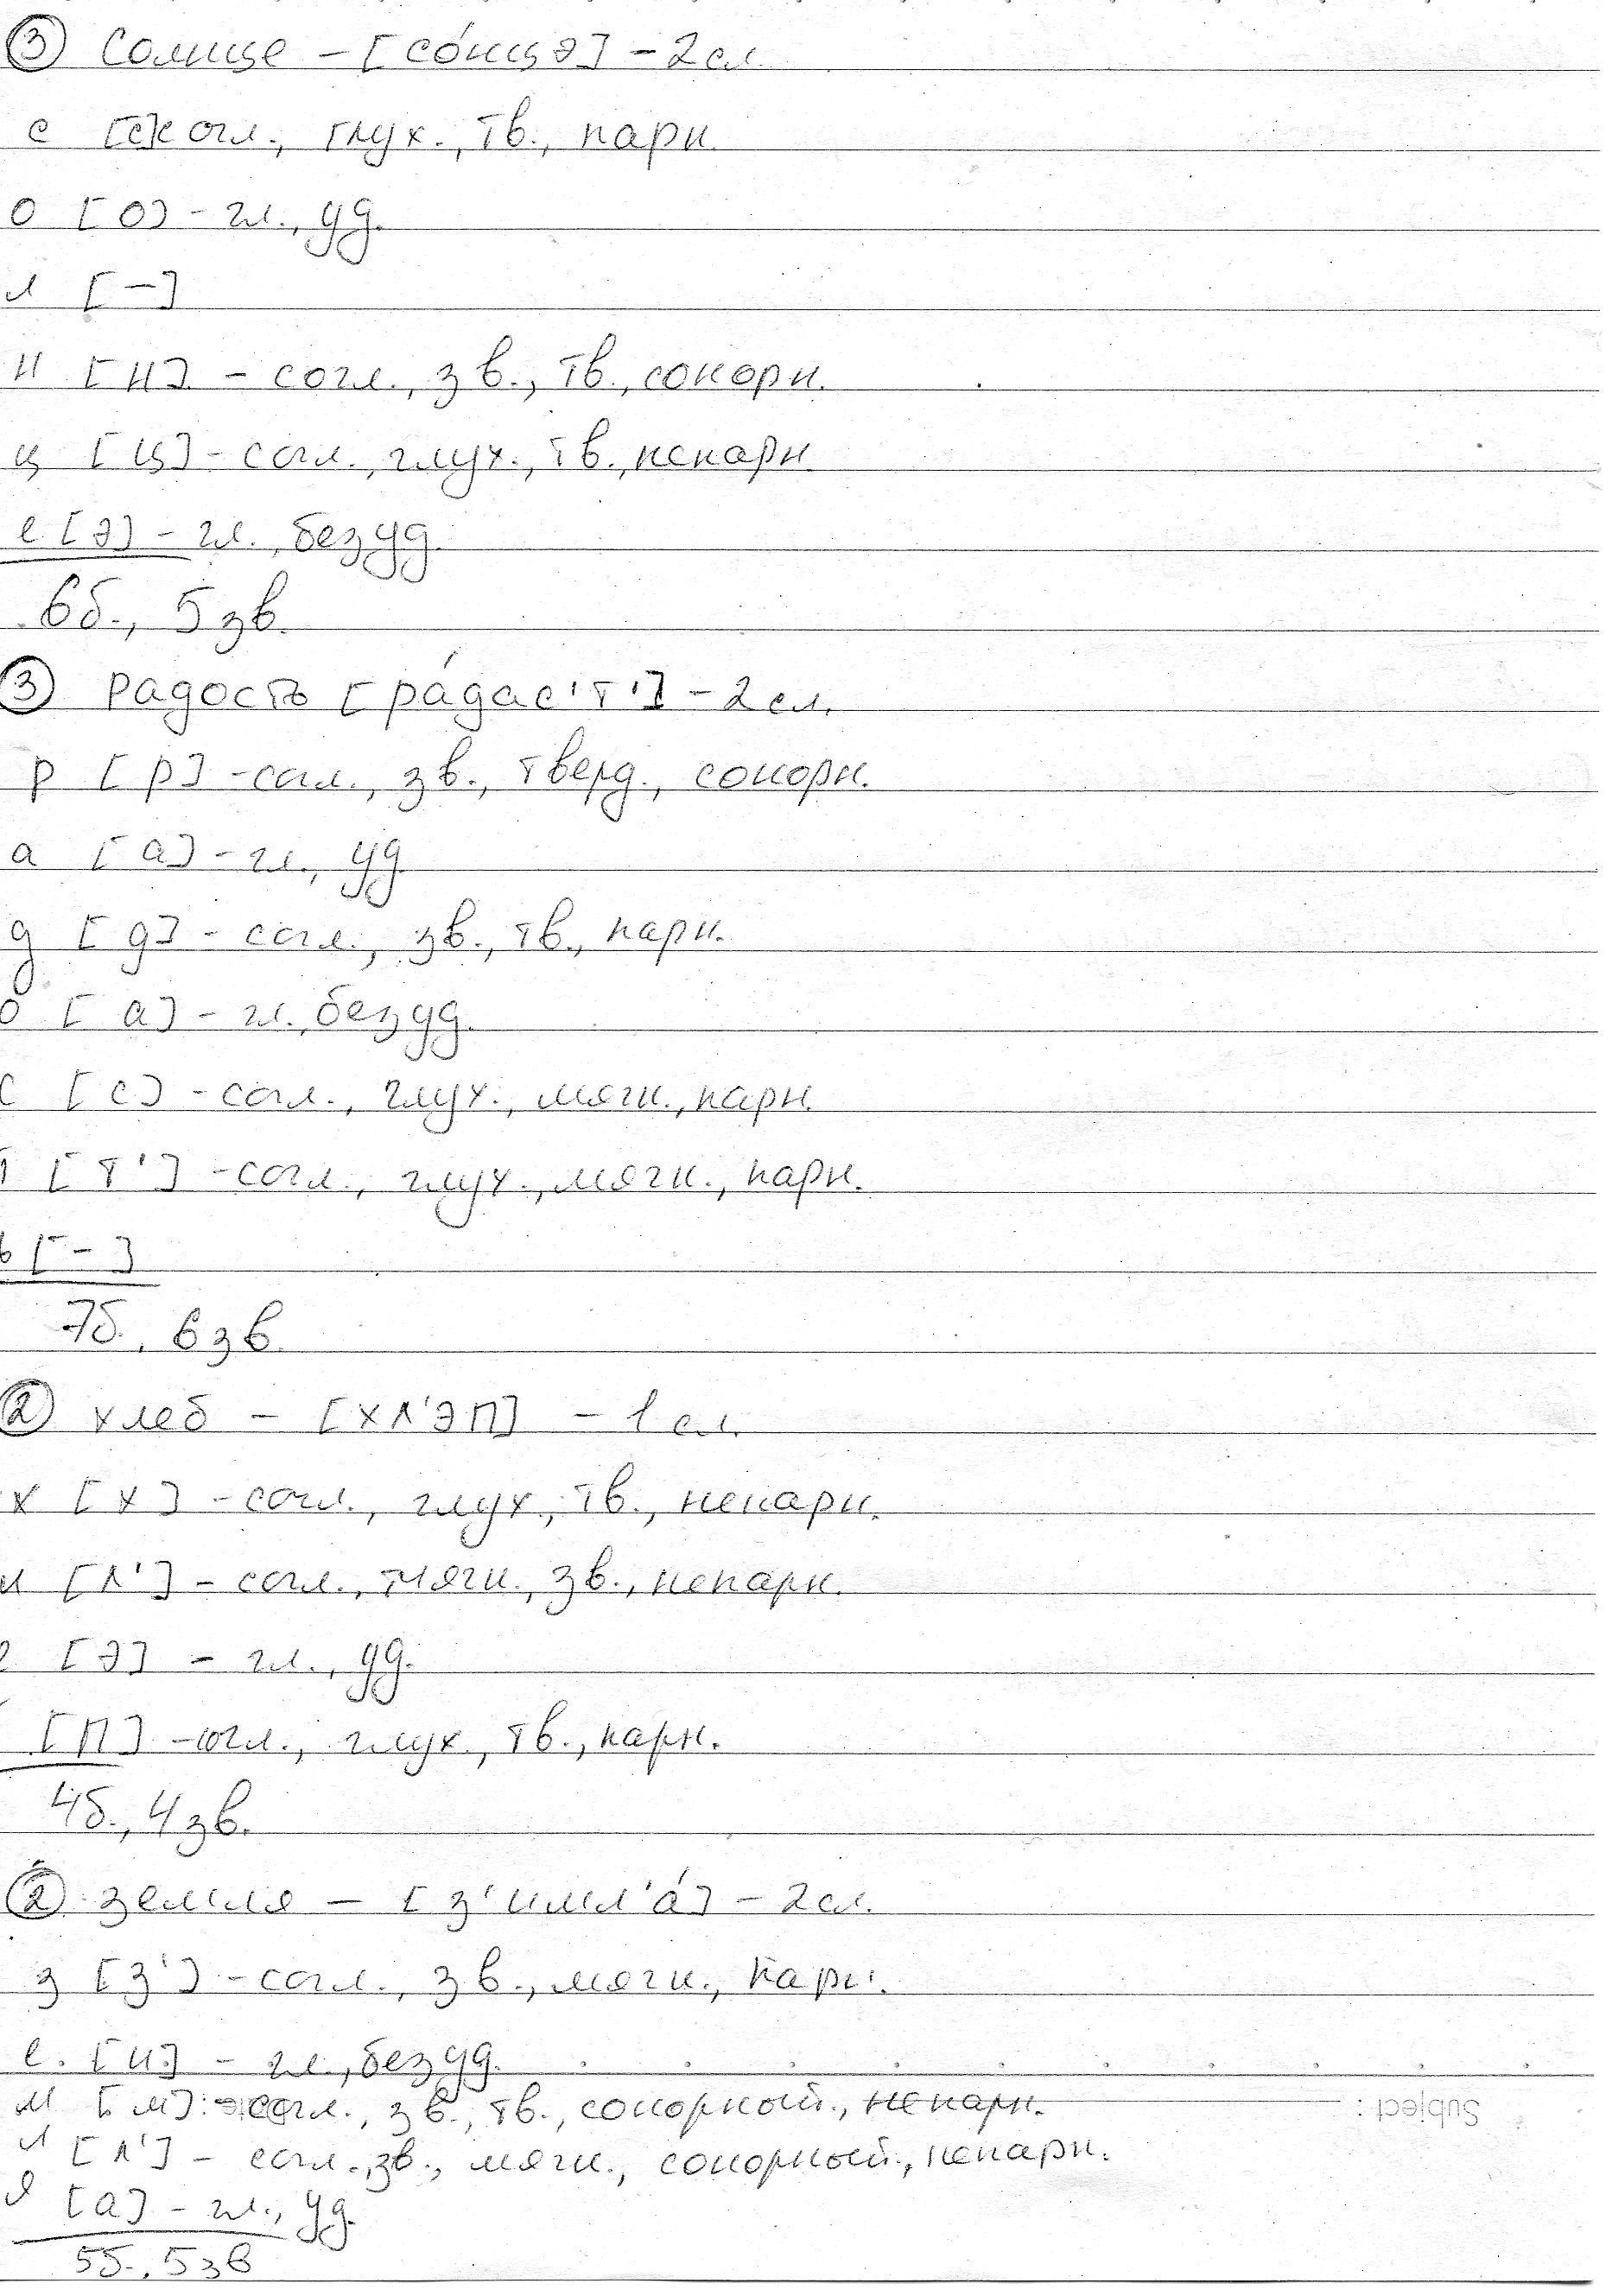 ③ Солнце – [со́нцэ] – 2 сл.
с [с] согл., глух., тв., парн.
о [о] – гл., уд.
л [–]
н [н] – согл., зв., тв., сонорн.
ц [ц] – согл., глух., тв., непарн.
е [э] – гл., безуд.
6 б., 5 зв.
③ радость [ра́дас'т'] – 2 сл.
р [р] – согл., зв., тверд., сонорн.
а [а] – гл., уд.
д [д] – согл., зв., тв., парн.
о [а] – гл., безуд.
с [с] – согл., глух., мягк., парн.
т [т'] – согл., глух., мягк., парн.
ь [–]
7 б., 6 зв.
② хлеб – [хл'эп] – 1 сл.
х [х] – согл., глух., тв., непарн.
л [л'] – согл., мягк., зв., непарн.
е [э] – гл., уд.
[п] – согл., глух., тв., парн.
4 б., 4 зв.
② земля – [з'имл'а́] – 2 сл.
з [з'] – согл., зв., мягк., парн.
е [и] – гл., безуд.
м [м] – согл., зв., тв., сонорный., непарн.
Subject :
л [л'] – согл., зв., мягк., сонорный., непарн.
я [а] – гл., уд.
5 б., 5 зв